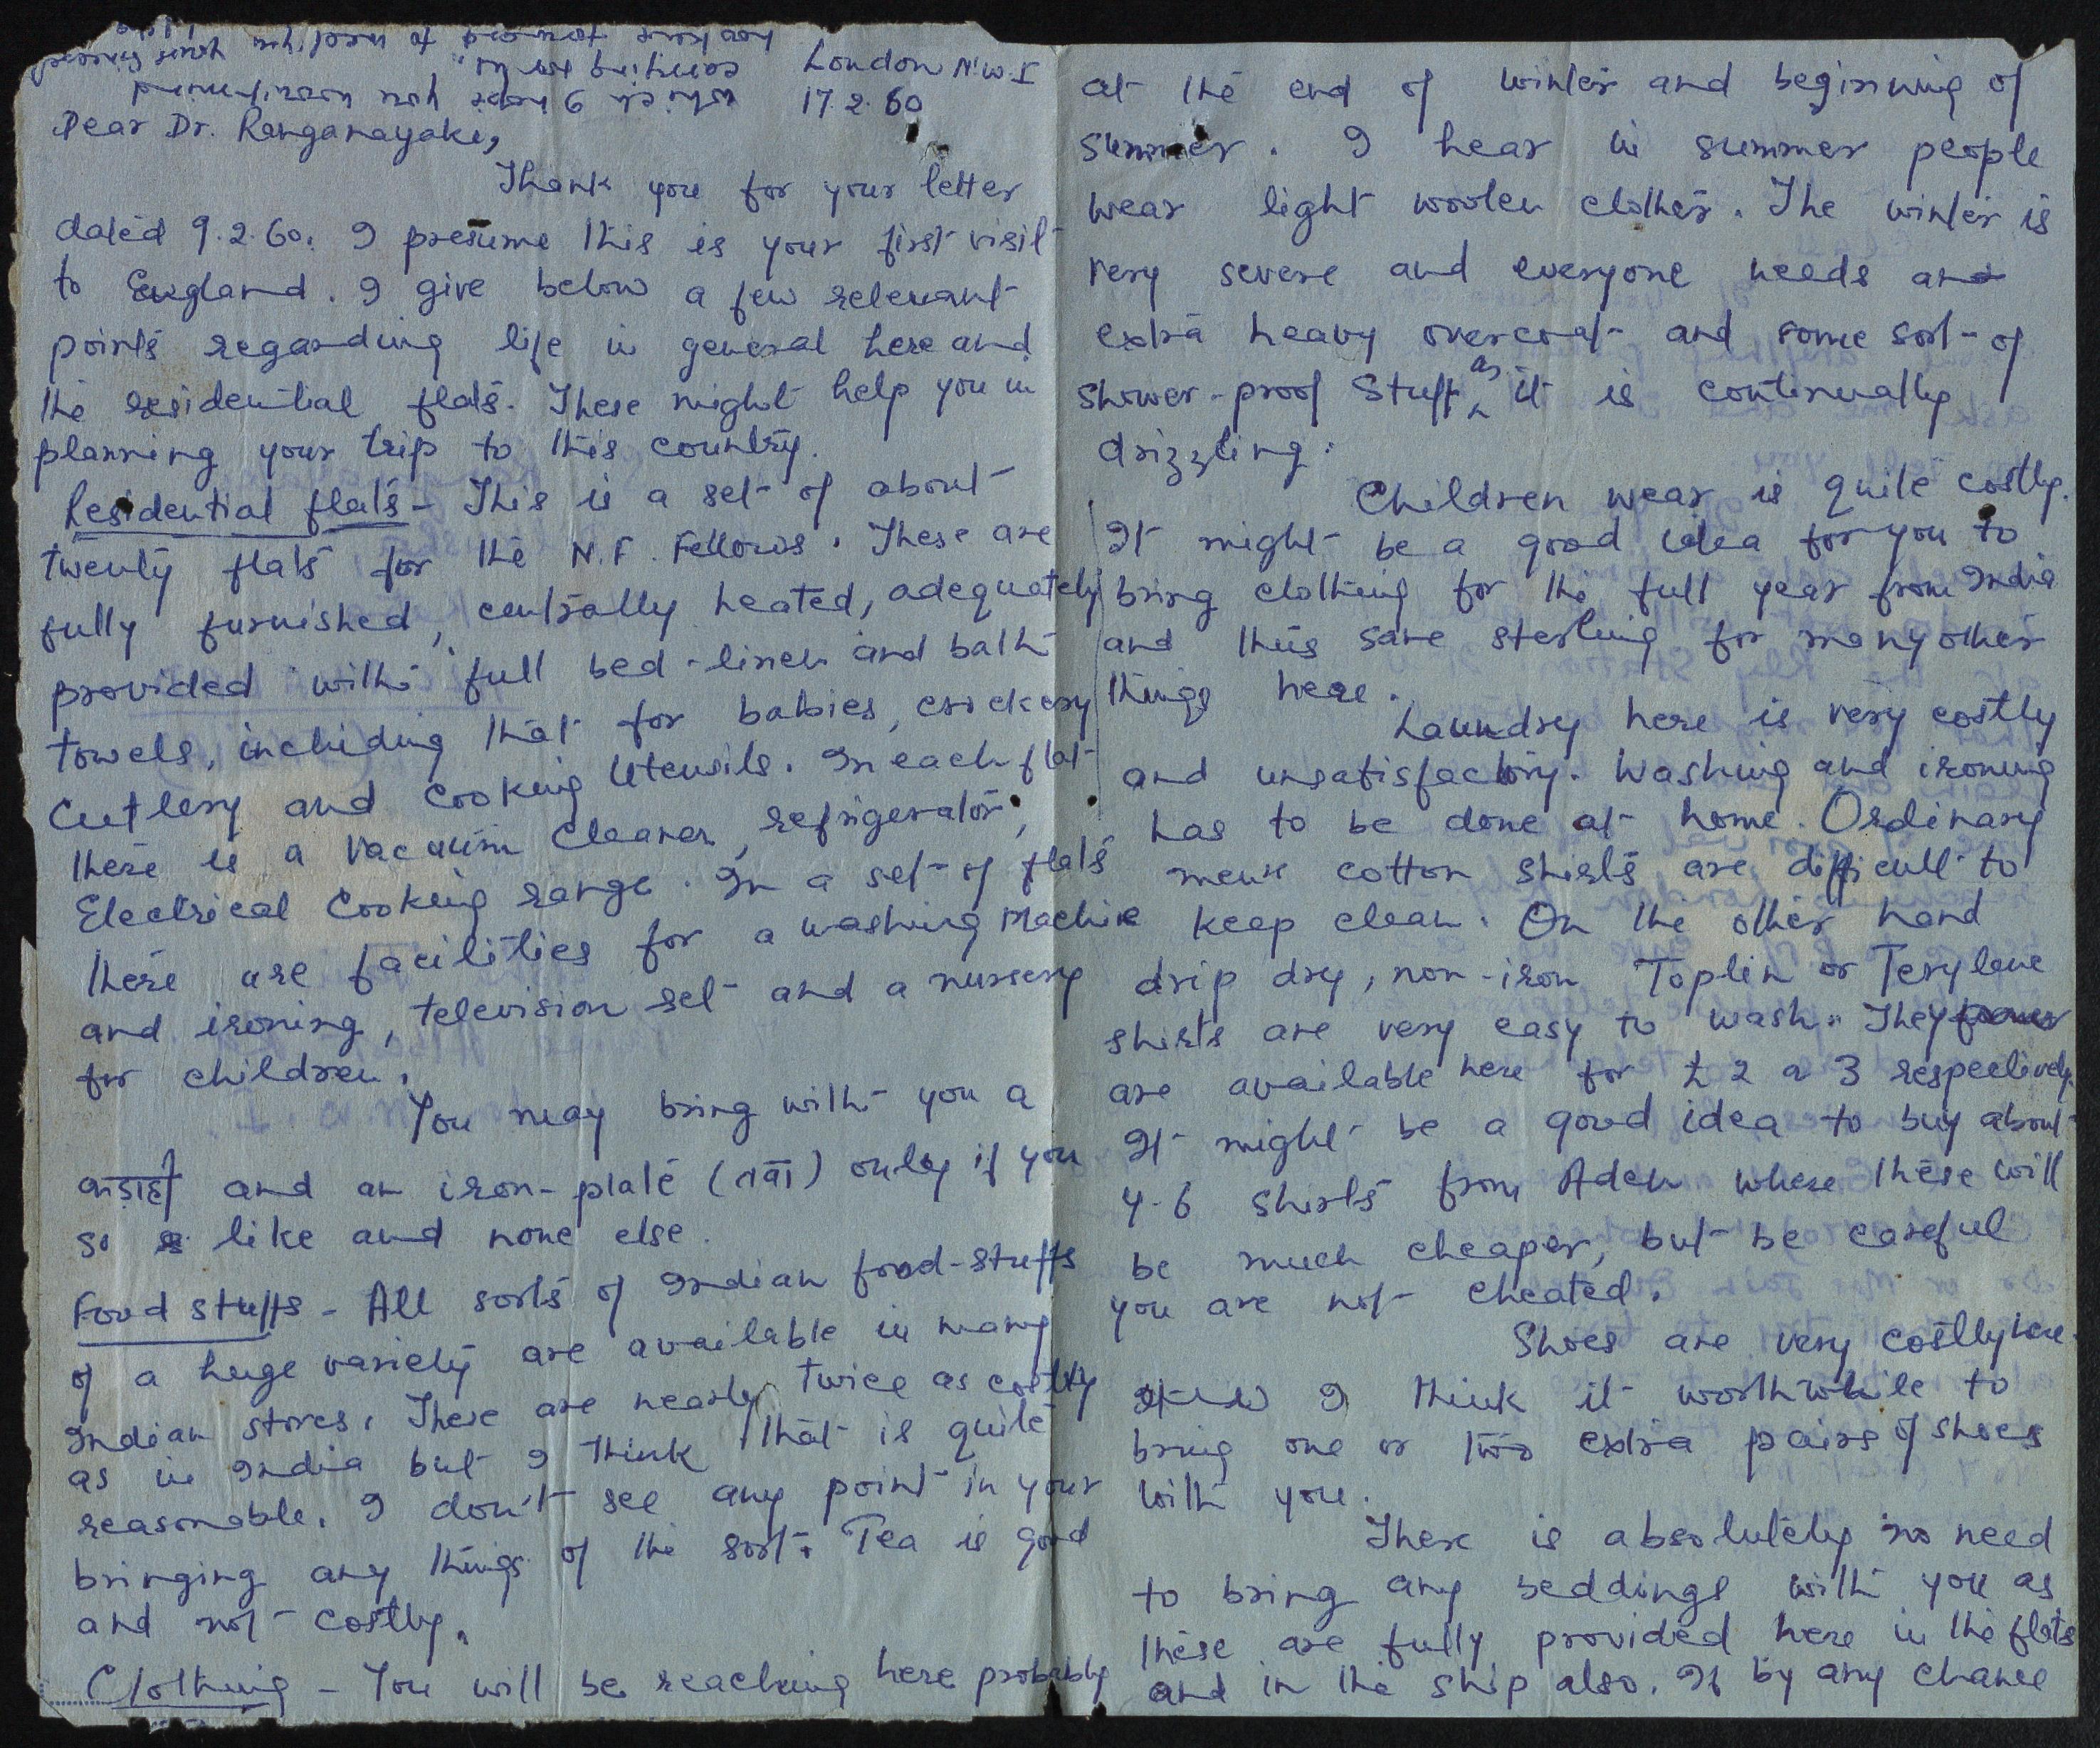 London N.W.1
17.2.60
Dear Dr. Ranganayaki,
Thank you for your letter
dated 9.2.60. I presume this is your first visit
to England. I give below a few relevant
points regarding life in general here and
the residential flats. These might help you in
planning your trip to this country.
Residential flats - This is a set of about
twenty flats for the N.F. Fellows. These are
fully furnished, centrally heated, adequately
provided with full bed-linen and bath
towels, including that for babies, crockery
Cutlery and cooking utensils. In each flat
there is a vacuum cleaner, refrigerator,
Electrical Cooking range. In a set of flats
there are facilities for a washing machine
and ironing, television set and a nursery
for children.
You may bring with you a
and an iron-plate (तवा) only if you
so like and none else.
Food stuffs - All sorts of Indian food-stuffs
of a huge variety are available in many
Indian stores. These are nearly twice as costly
as in India but I think that is quite
reasonable. I don't see any point in your
bringing any things of the sort. Tea is good
and not costly.
Clothing - You will be reaching here probably
at the end of winter and beginning of
summer. I hear in summer people
wear light woolen clothes. The winter is
very severe and everyone needs an
extra heavy overcoat and some sort of
shower-proof stuff, as it is continually
drizzling.
Children wear is quite costly.
It might be a good idea for you to
bring clothing for the full year from India
and thus save sterling for many other
things here.
Laundry here is very costly
and unsatisfactory. Washing and ironing
has to be done at home. Ordinary
mens cotton shirts are difficult to
keep clean. On the other hand
drip dry, non-iron Toplin or Terylene
shirts are very easy to wash. They
are available here for £ 2 a 3 respectively.
It might be a good idea to buy about
4-6 shirts from Aden where these will
be much cheaper, but be careful
you are not cheated.
Shoes are very costly here.
I think it worthwhile to
bring one or two extra pairs of shoes
with you.
There is absolutely no need
to bring any beddings with you as
these are fully provided here in the flats
and in the ship also. If by any chance
which I hope you would find
comfying to me.
looking forward to meeting you